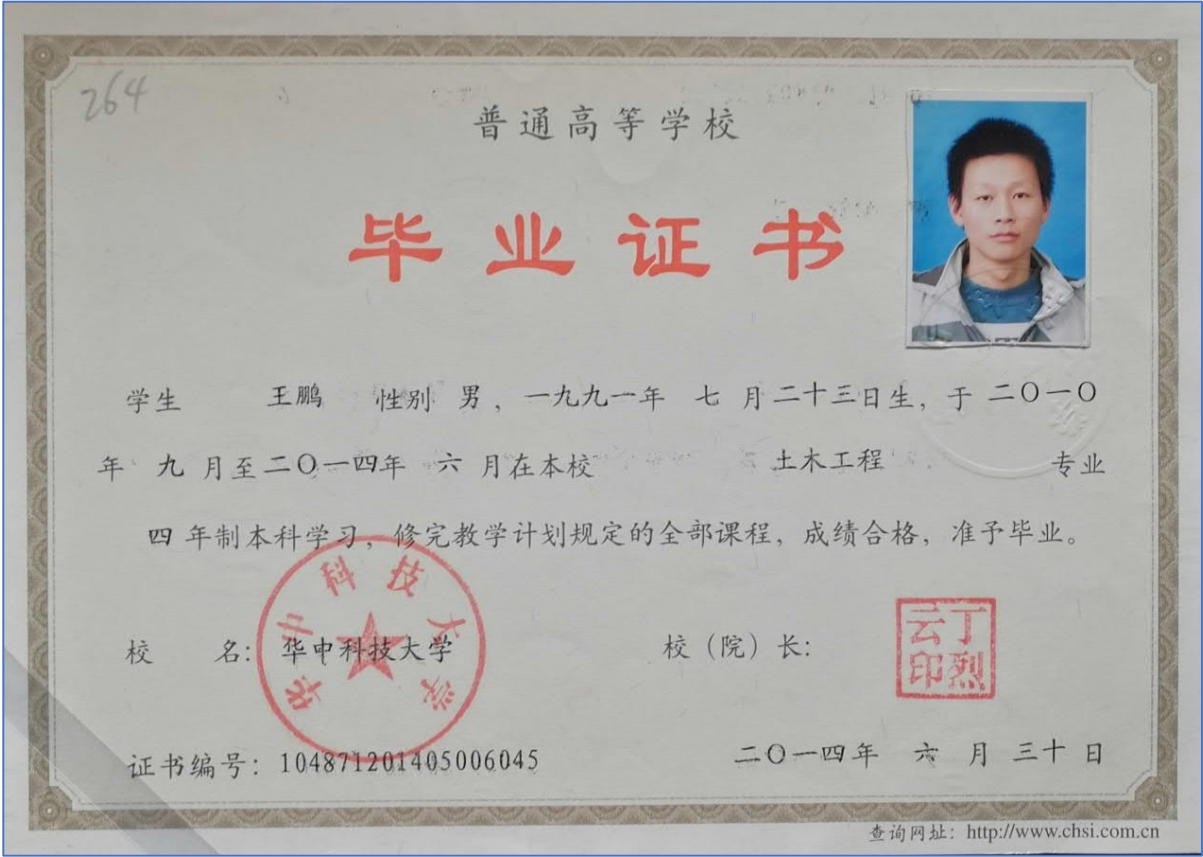 264
普通高等学校
毕业证书
学生 王鹏 性别 男，一九九一年 七 月二十三日生，于 二〇一〇
年 九 月至二〇一四年 六 月在本校 土木工程 专业
四 年制本科学习，修完教学计划规定的全部课程，成绩合格，准予毕业。
华中科技大学
校 名：华中科技大学 校（院）长：
丁烈云印
证书编号：104871201405006045 二〇一四年 六 月 三十 日
查询网址：http://www.chsi.com.cn